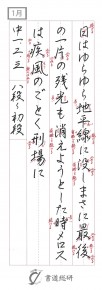 1月
日はゆらゆら地平線に没しまさに最後
の一片の残光も消えようとした時メロス
は疾風のごとく刑場に
中一・二・三 八段〜初段
書道総研